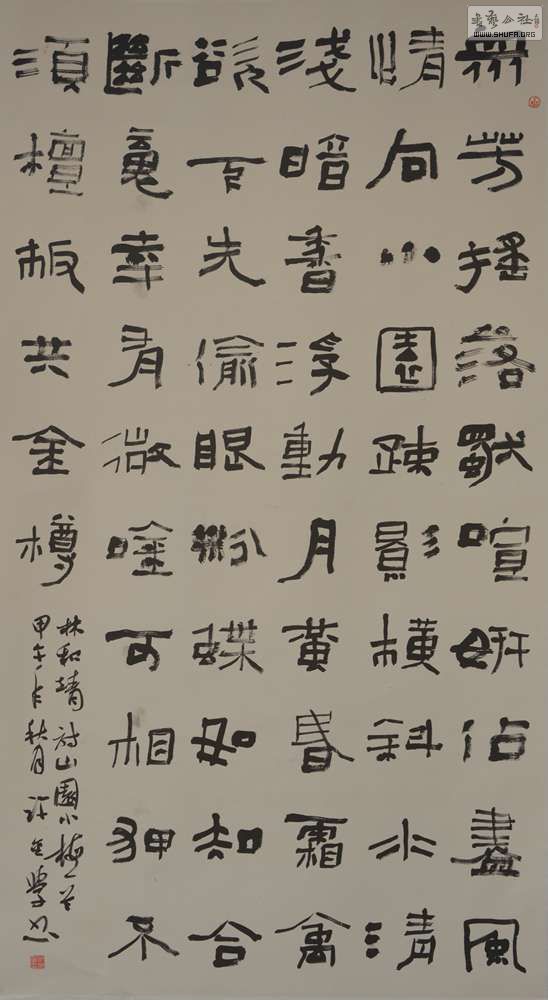 書藝公社
WWW.SHUFA.ORG
衆芳搖落獨喧妍佔盡風
情向小園疎影橫斜水清
淺暗香浮動月黃昏霜禽
欲下先偷眼粉蝶如知合
斷魂幸有微唫可相狎不
須檀板共金樽
林和靖詩山園小梅一首
甲午年秋月許金學書